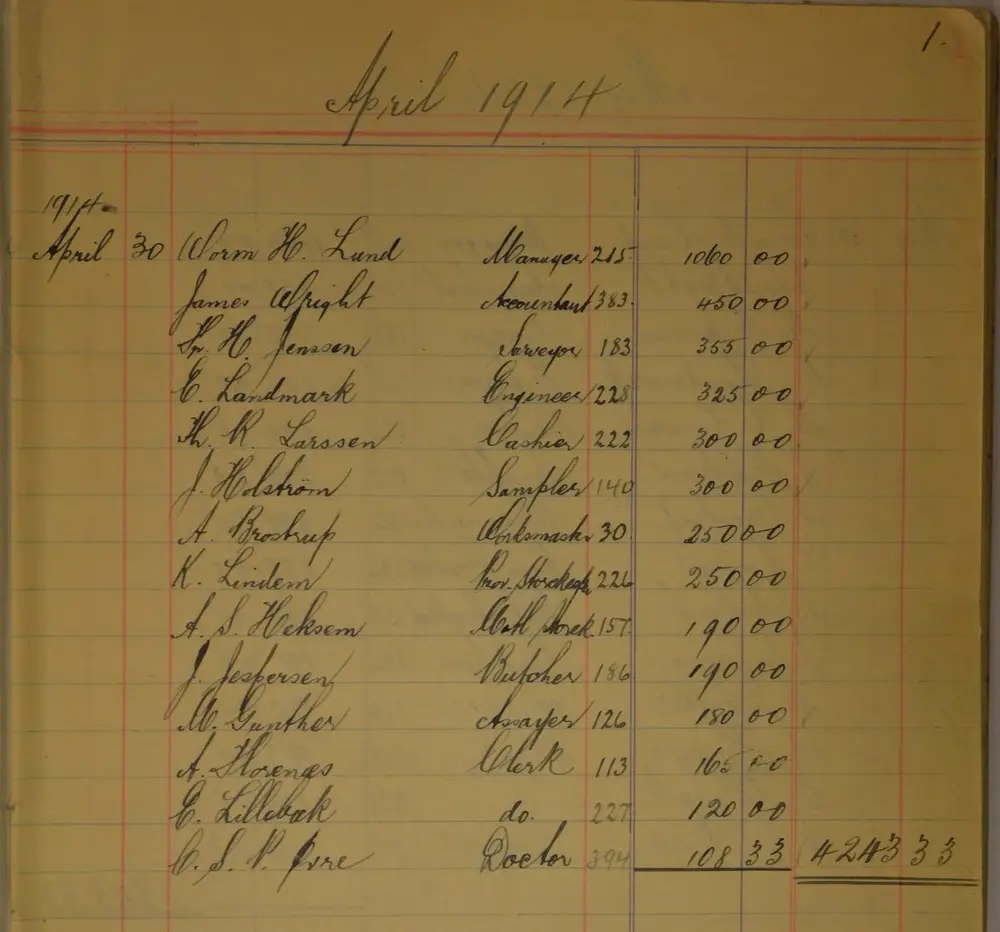 1.
April 1914
1914
April 30 Worm H. Lund Manager 215 1060 00
James Wright Accountant 383. 450 00
H. Jenssen Surveyor 183 355 00
E. Landmark Engineer 228 325 00
Th. R. Larssen Cashier 222 300 00
J. Holström Sampler 140 300 00
A. Brostrup Worksmastr 30. 250 00
K. Lindem Prov. 226 250 00
A. S. Heksem Matl Storek. 157. 190 00
J. Jespersen Butcher 186 190 00
M. Gunther Assayer 126 180 00
A. Storenæs Clerk 113 165 00
E. Lillebæk do. 227 120 00
C. S. P. Øvre Doctor 394 108 33 4243 33